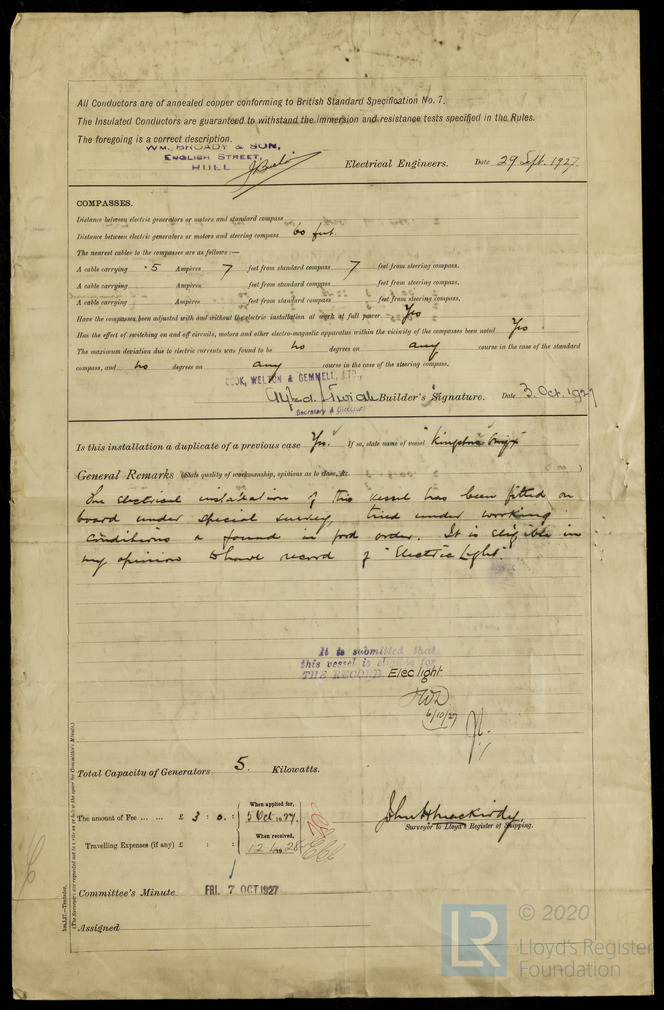 All Conductors are of annealed copper conforming to British Standard Specification No. 7.
The Insulated Conductors are guaranteed to withstand the immersion and resistance tests specified in the Rules.
The foregoing is a correct description.
WM. BROADY & SON,
ENGLISH STREET,
HULL
Electrical Engineers. Date 29 Sept. 1927.
COMPASSES.
Distance between electric generators or motors and standard compass
Distance between electric generators or motors and steering compass 60 feet.
The nearest cables to the compasses are as follows:—
A cable carrying .5 Ampères 7 feet from standard compass 7 feet from steering compass.
A cable carrying Ampères feet from standard compass feet from steering compass.
A cable carrying Ampères feet from standard compass feet from steering compass.
Have the compasses been adjusted with and without the electric installation at work at full power Yes
Has the effect of switching on and off circuits, motors and other electro-magnetic apparatus within the vicinity of the compasses been noted Yes
The maximum deviation due to electric currents was found to be no degrees on any course in the case of the standard
compass, and no degrees on any course in the case of the steering compass.
COOK, WELTON & GEMMELL, LTD.,
Builder's Signature. Date 3. Oct. 1927
Secretary & Director
Is this installation a duplicate of a previous case Yes. If so, state name of vessel "Kingston
General Remarks (State quality of workmanship, opinions as to class, &c.
The electrical installation of this vessel has been fitted on
board under special survey, tried under working
conditions & found in good order. It is eligible in
my opinion to have record of "Electric Light."
It is submitted that
this vessel is eligible for
THE RECORD. Elec light.
6/10/27
Total Capacity of Generators 5. Kilowatts.
The amount of Fee ... ... £ 3 : 0. :
When applied for,
5 Oct. 1927.
Travelling Expenses (if any) £ : :
When received,
12.4.1928
Surveyor to Lloyd's Register of Shipping.
Committee's Minute FRI. 7 OCT 1927
Assigned
(The Surveyors are requested not to write on or below the space for Committee's Minute.)
© 2020
LR
Lloyd's Register
Foundation